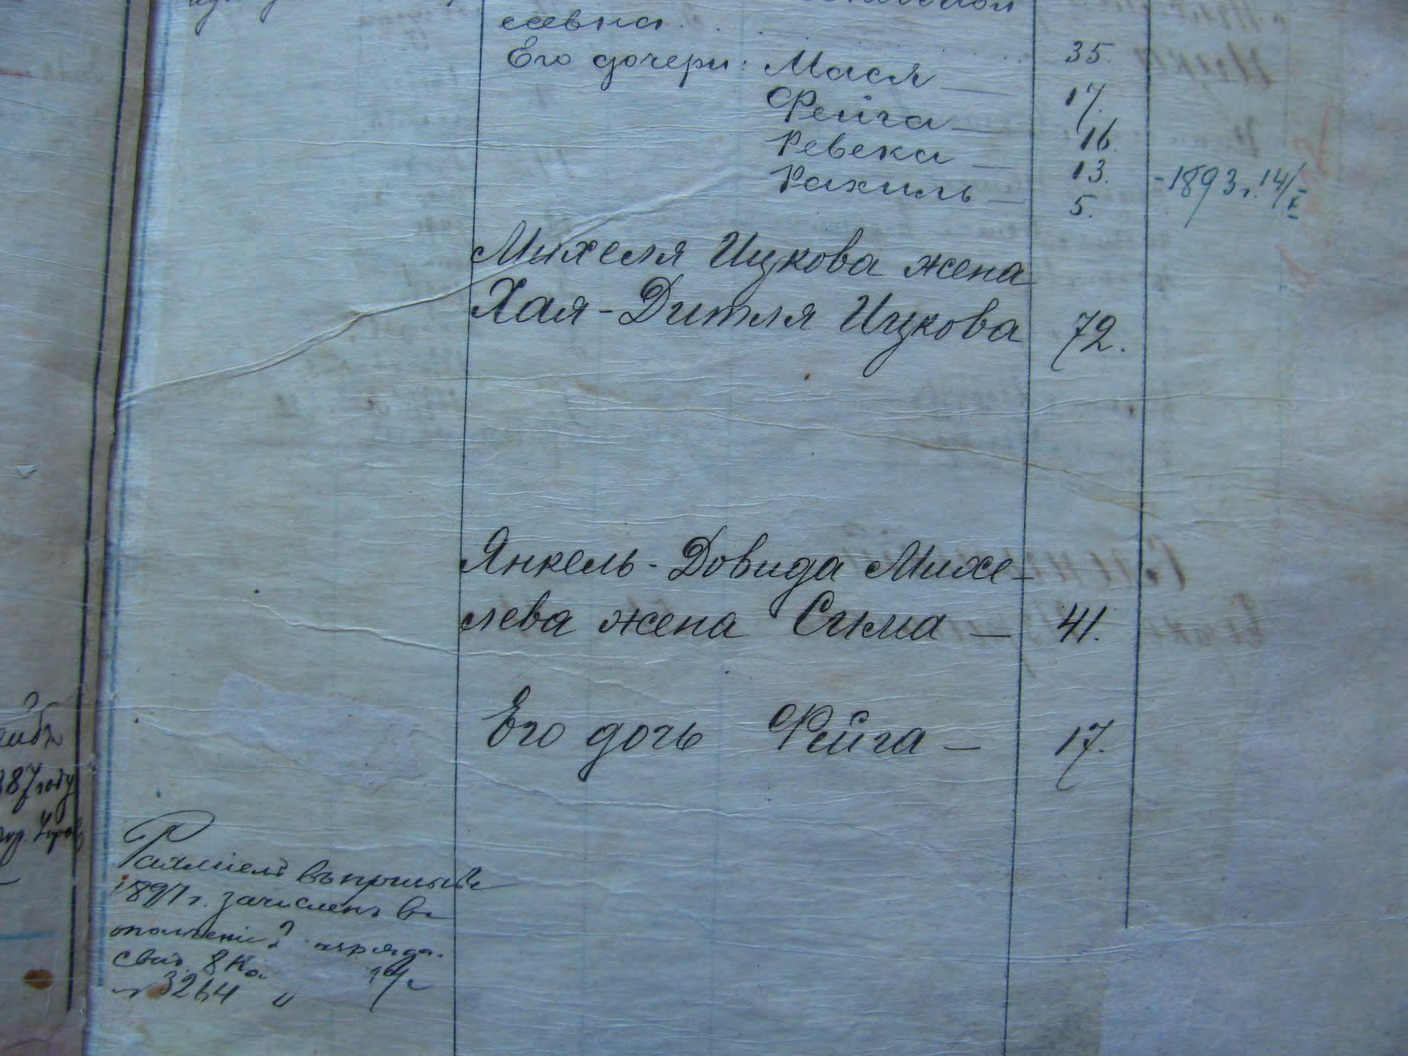 севна.
Его дочери: Мася — 35.
Фейга — 17.
Ревека — 16.
Рахиль — 13. - 1893 г. 14/X
5.
Михеля Ицкова жена
Хая-Дитля Ицкова 72.
Янкель-Довида Михе-
лева жена Сима — 41.
Его дочь Фейга — 17.
87 году
въ призывъ
1891 г. зачисленъ въ
ополченіе 2 разряда.
свид.
№ 3264 "